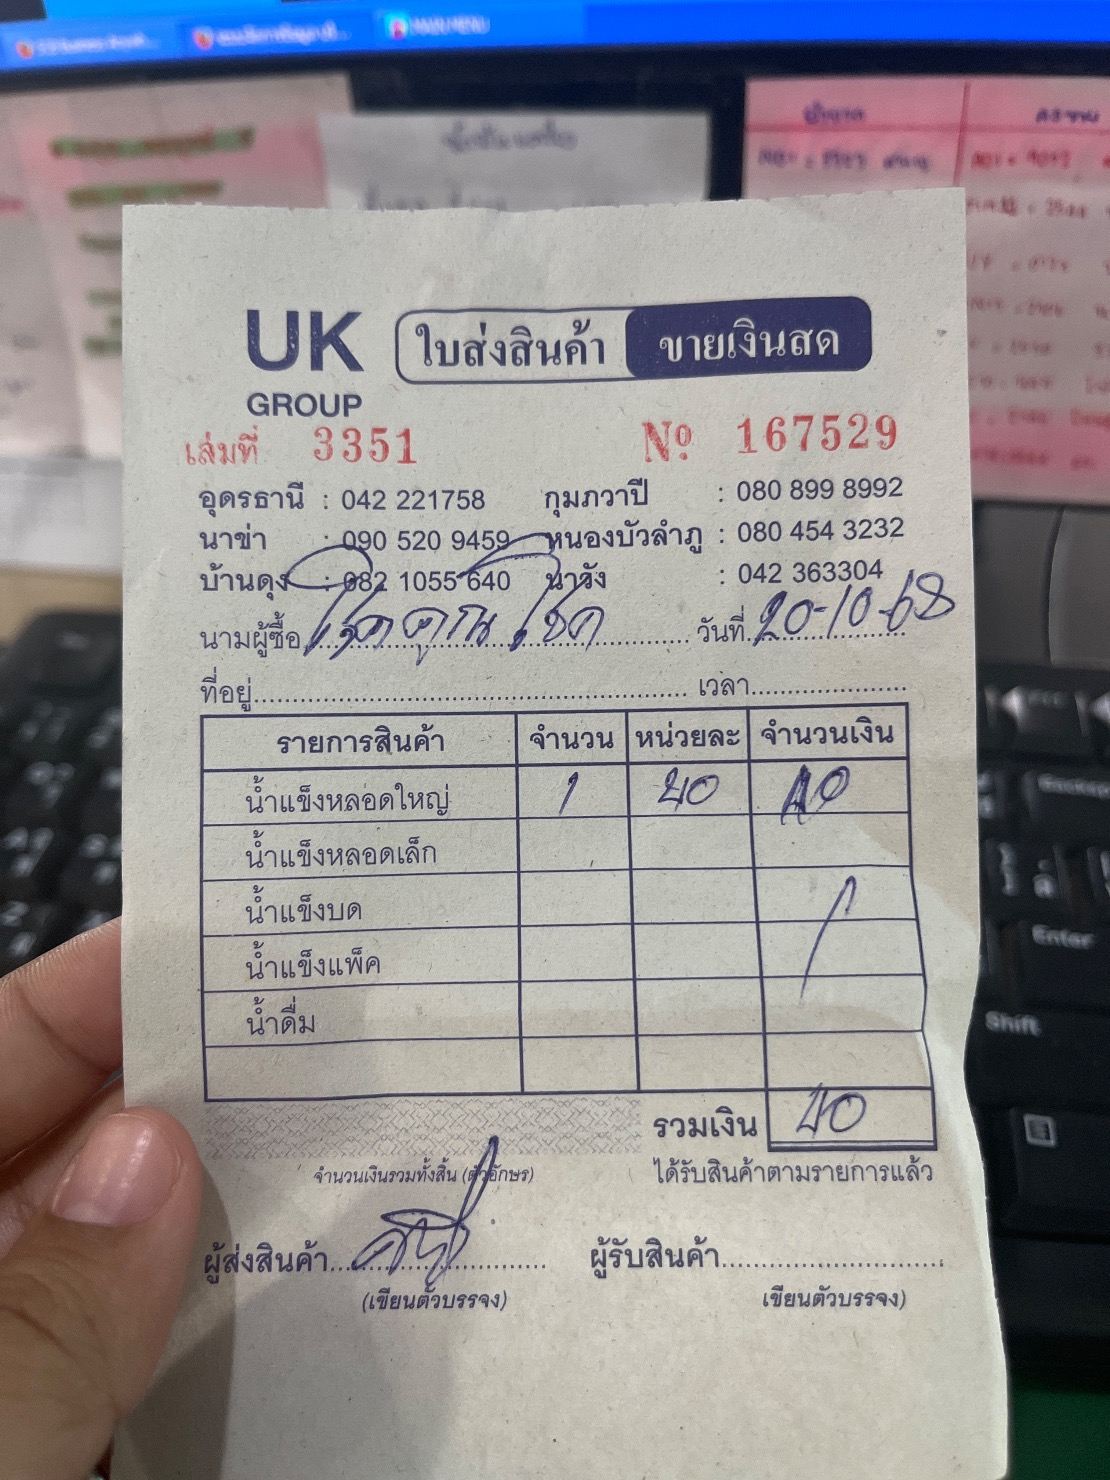 MAIN MENU
UK
GROUP
ใบส่งสินค้า ขายเงินสด
เล่มที่ 3351 Nº 167529
อุดรธานี : 042 221758 กุมภวาปี : 080 899 8992
นาข่า : 090 520 9459 หนองบัวลำภู : 080 454 3232
บ้านดุง : 082 1055 640 นาวัง : 042 363304
นามผู้ซื้อ โชคคูณโชค วันที่ 20-10-68
ที่อยู่ เวลา
รายการสินค้า จำนวน หน่วยละ จำนวนเงิน
น้ำแข็งหลอดใหญ่ 1 40 40
น้ำแข็งหลอดเล็ก
น้ำแข็งบด
น้ำแข็งแพ็ค
น้ำดื่ม
รวมเงิน 40
จำนวนเงินรวมทั้งสิ้น (ตัวอักษร) ได้รับสินค้าตามรายการแล้ว
ผู้ส่งสินค้า ผู้รับสินค้า
(เขียนตัวบรรจง) เขียนตัวบรรจง)
Enter
Shift